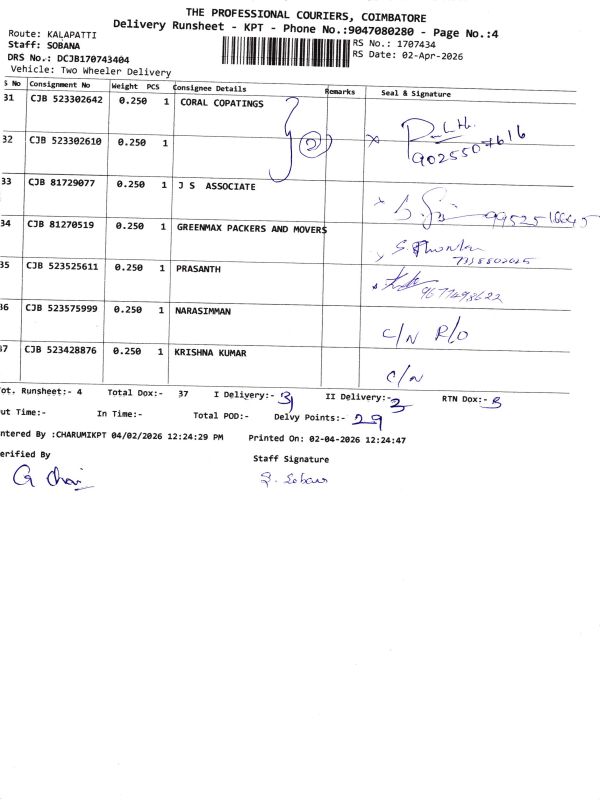 THE PROFESSIONAL COURIERS, COIMBATORE
Delivery Runsheet - KPT - Phone No.:9047080280 - Page No.:4
Route: KALAPATTI
RS No.: 1707434
Staff: SOBANA
RS Date: 02-Apr-2026
DRS No.: DCJB170743404
Vehicle: Two Wheeler Delivery
S No Consignment No Weight PCS Consignee Details Remarks Seal & Signature
31 CJB 523302642 0.250 1 CORAL COPATINGS
32 CJB 523302610 0.250 1 2 9025507616
33 CJB 81729077 0.250 1 J S ASSOCIATE
34 CJB 81270519 0.250 1 GREENMAX PACKERS AND MOVERS
35 CJB 523525611 0.250 1 PRASANTH 9677493622
36 CJB 523575999 0.250 1 NARASIMMAN C/N R/O
37 CJB 523428876 0.250 1 KRISHNA KUMAR C/N
ot. Runsheet:- 4 Total Dox:- 37 I Delivery:- 3 II Delivery:- 3 RTN Dox:- 3
ut Time:- In Time:- Total POD:- Delvy Points:- 29
ntered By :CHARUMIKPT 04/02/2026 12:24:29 PM Printed On: 02-04-2026 12:24:47
erified By Staff Signature